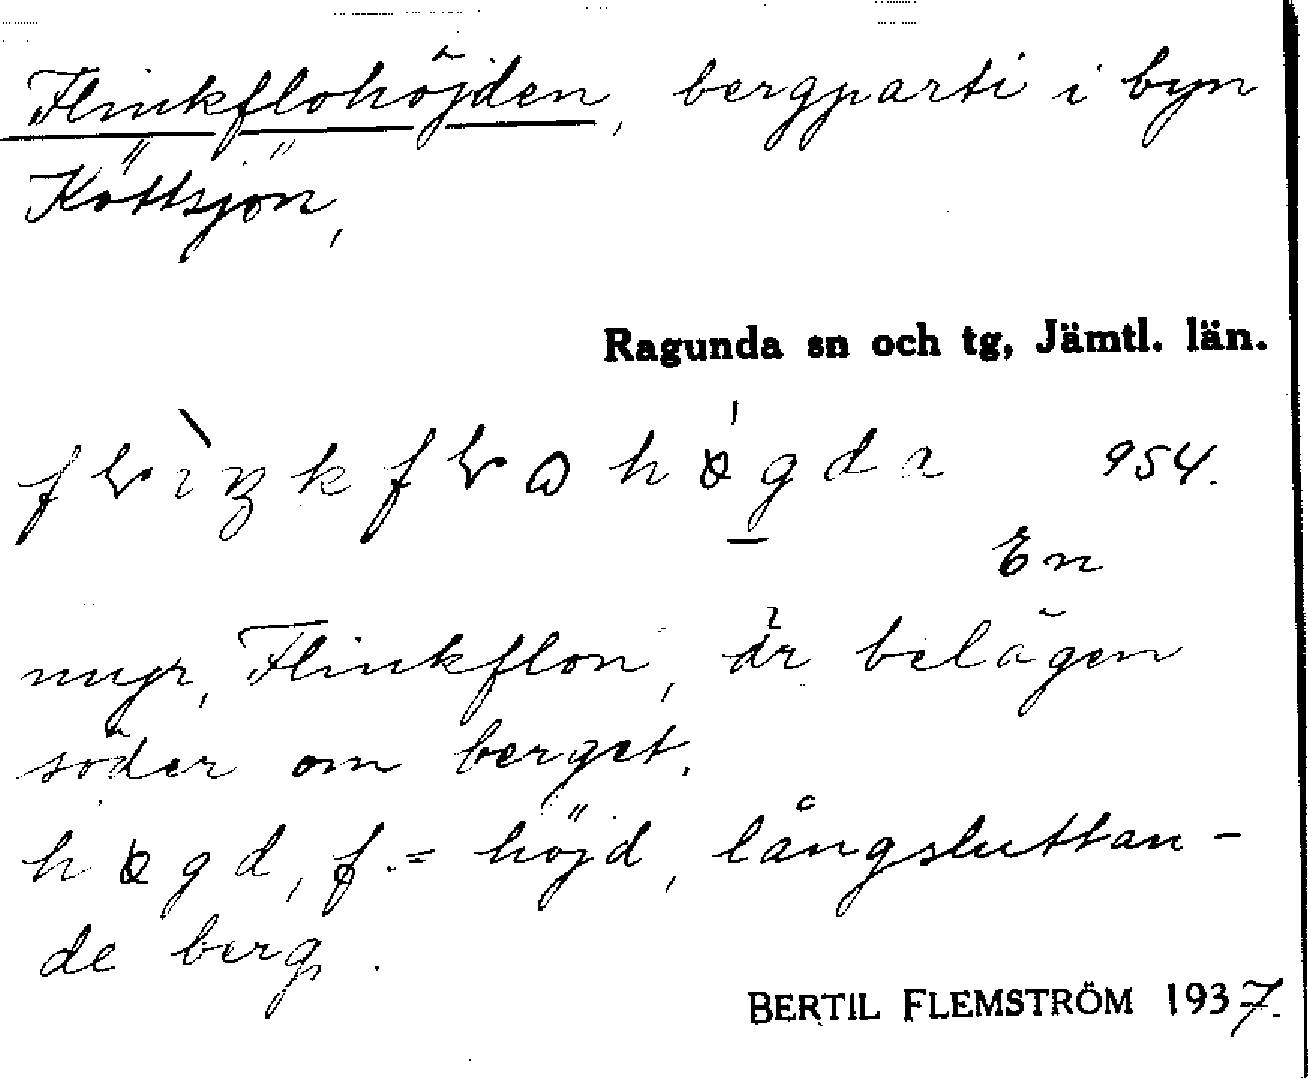 Flinkflohöjden, bergparti i byn
Köttsjön,
Ragunda sn och tg, Jämtl. län.
954.
En
myr, Flinkflon, är belägen
söder om berget.
höjd, långsluttan-
de berg.
BERTIL FLEMSTRÖM 1937.